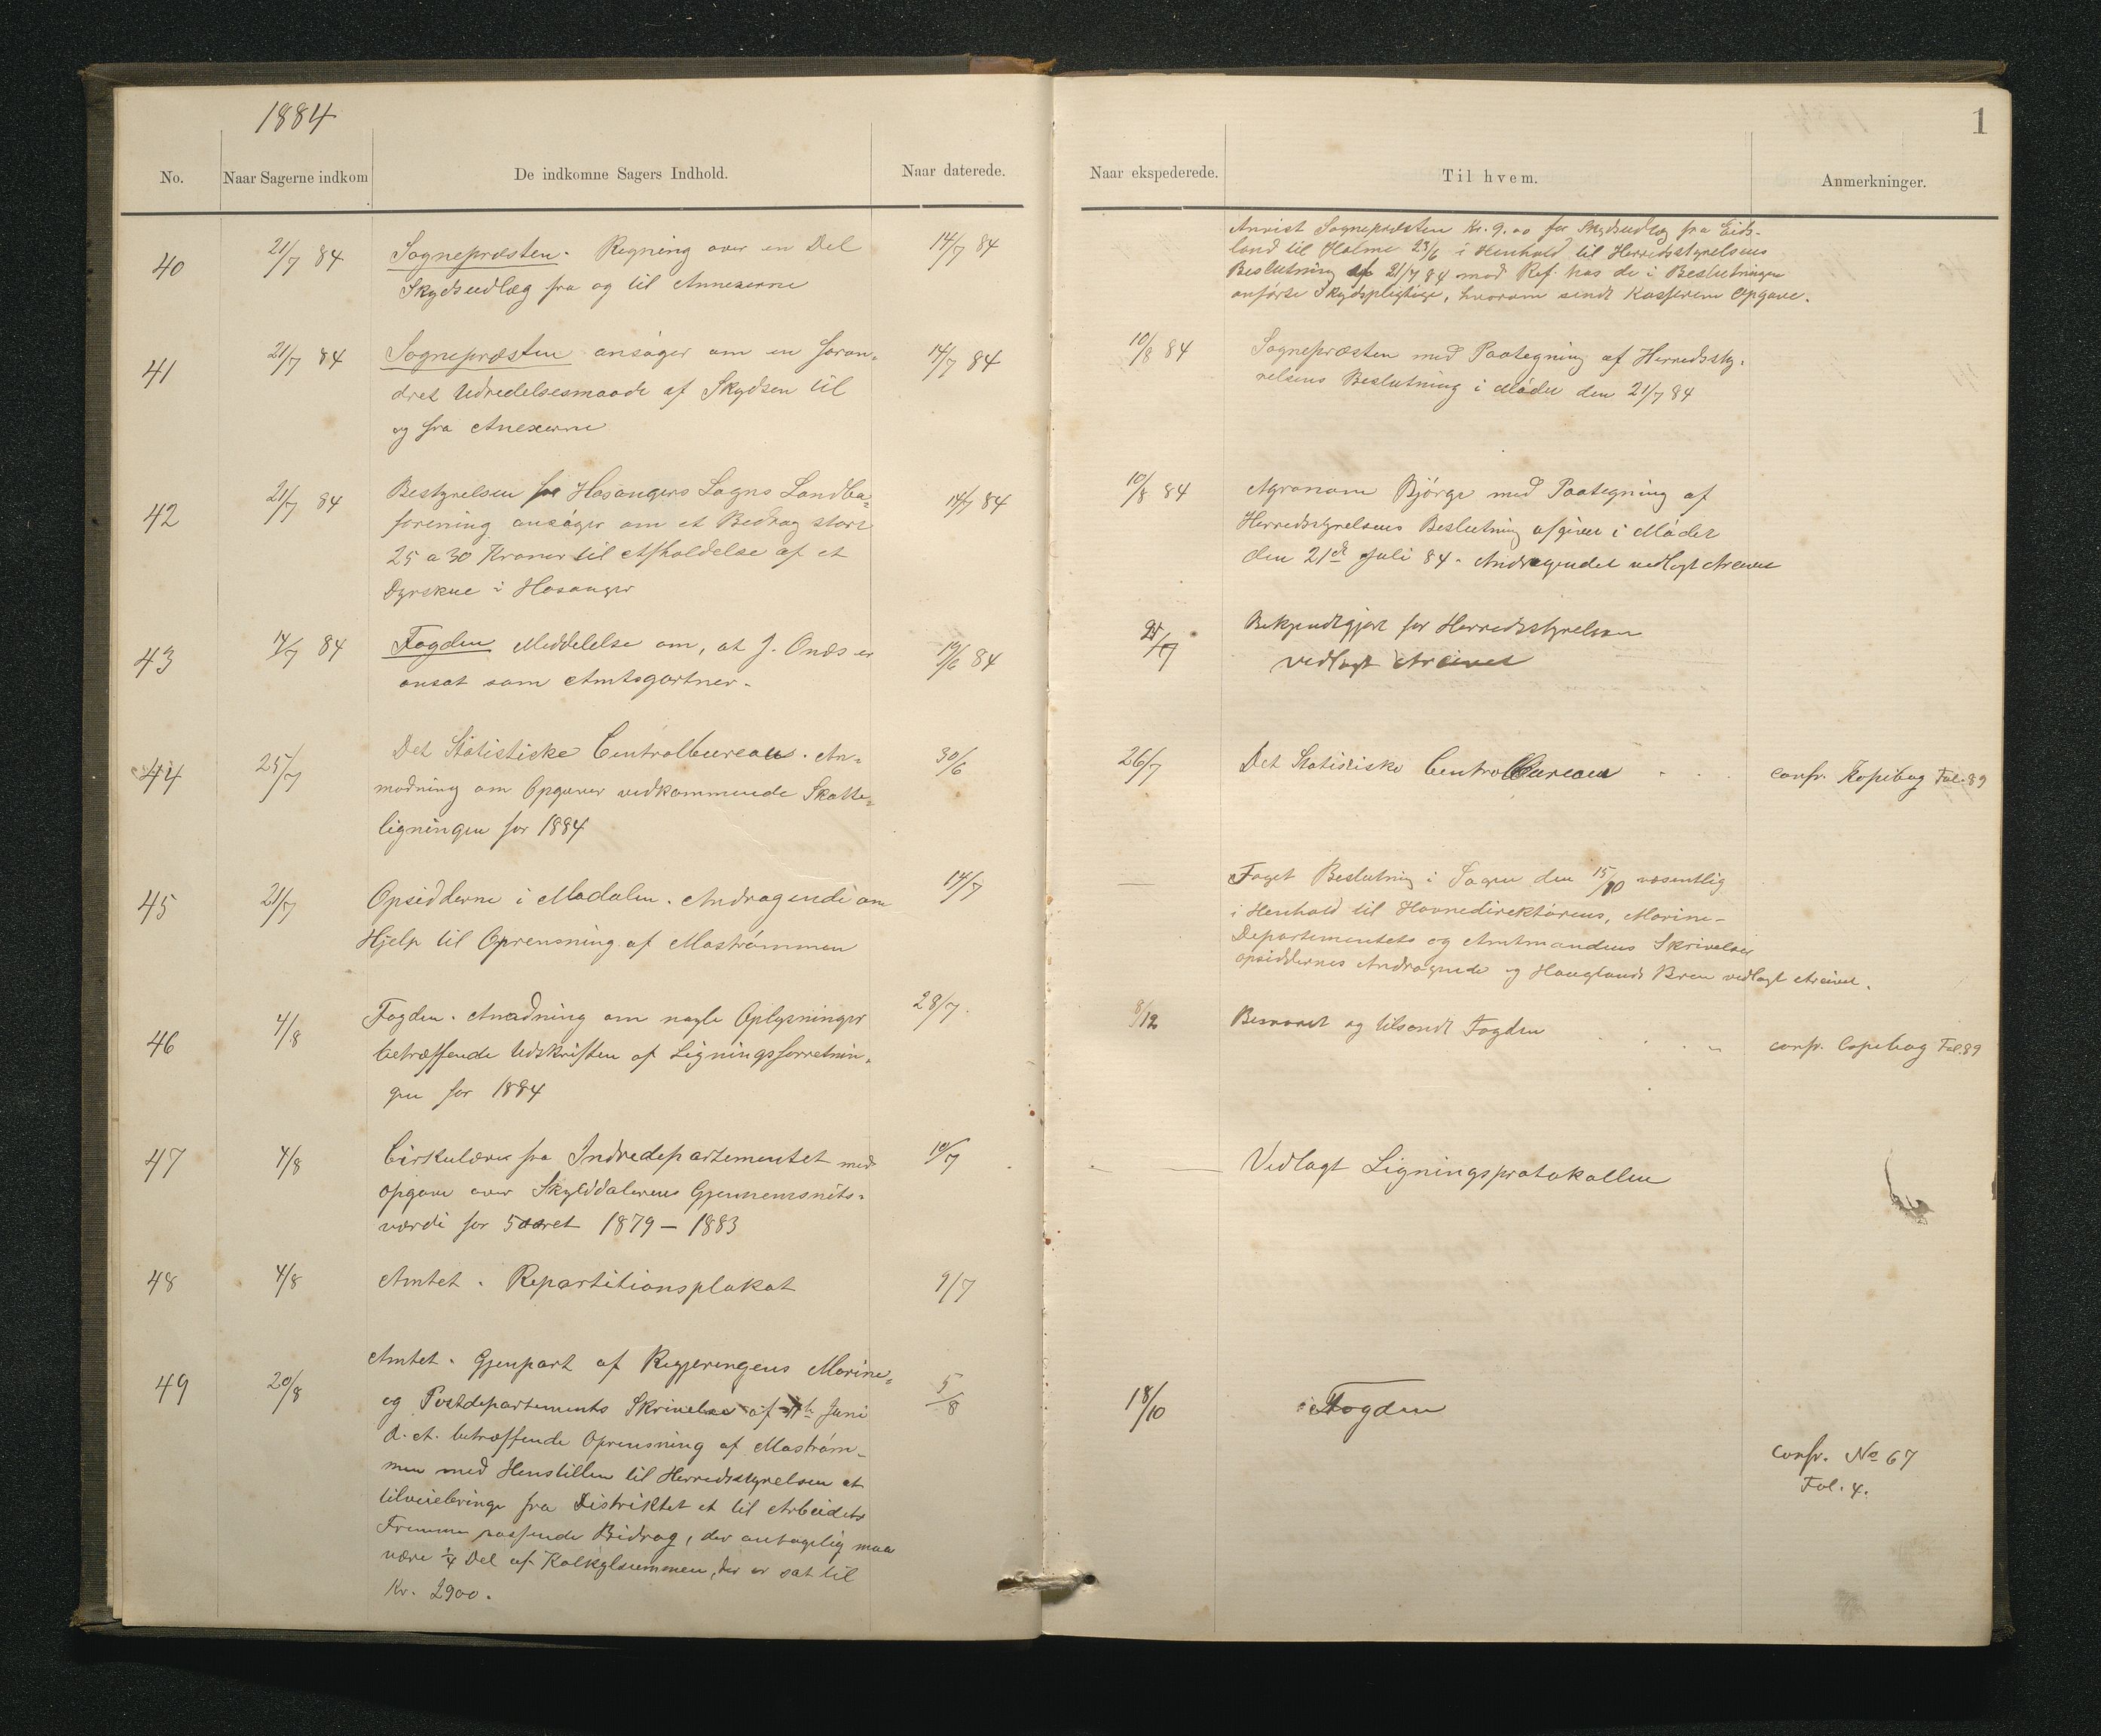 1884
1
No. Naar Sagerne indkom De indkomne Sagers Indhold. Naar daterede. Naar ekspederede. Til hvem. Anmerkninger.
40 21/7 84 Sognepræsten. Regning over en Del 14/7 84
Skydsudlæg fra og til Annexerne
Anvist Sognepræsten Kr. 9.00 for Skydsudlæg fra Eids-
land til Holme 23/6 i Henhold til Herredsstyrelsens
Beslutning af 21/7 84 mod Ref. hos de i Beslutningen
anførte Skydspligtige, hvorom sendt Kassereren Opgave.
41 21/7 84 Sognepræsten ansøger om en foran- 14/7 84
dret Udredelsesmaade af Skydsen til
og fra Anexerne
10/8 84 Sognepræsten med Paategning af Herredssty-
relsens Beslutning i Mødet den 21/7 84
42 21/7 84 Bestyrelsen for Hosangers Sogns Landbo- 14/7 84
forening ansøger om et Bedrag stort
25 a 30 Kroner til Afholdelse af et
Dyrskue i Hosanger
10/8 84 Agronom Bjørge med Paategning af
Herredsstyrelsens Beslutning afgiven i Mødet
den 21de Juli 84. Andragendet vedlagt Arcivet
43 14/7 84 Fogden Meddelelse om, at J. Onæs er 19/6 84
ansat som Amtsgartner.
21/7 Bekjendtgjort for Herredsstyrelsen
vedlagt Arcivet
44 25/7 Det Statistiske Centralbureau. An- 30/6
modning om Opgaver vedkommende Skatte-
ligningen for 1884
26/7 Det Statistiske Centralbureau confr. Kopibog Fol. 89
45 21/7 Opsidderne i Modalen. Andragende om 14/7
Hjelp til Oprensning af Mostrømmen
— Foget Beslutning i Sagen den 15/10 væsentlig
i Henhold til Havnedirektørens, Marine-
Departementets og Amtmandens Skrivelse
opsiddernes Andragende og Hauglands Brev vedlagt Arcivet.
46 4/8 Fogden. Anmodning om nogle Oplysninger 28/7.
betræffende Udskriften af Ligningsforretnin-
gen for 1884
8/12 Besvaret og tilsendt Fogden confr. Copibog Fol. 89
47 4/8 Cirkulære fra Indredepartementet med 10/7
Opgave over Skylddalerens Gjennemsnits-
værdi for 5aaret 1879 — 1883
— Vedlagt Ligningsprotokollen
48 4/8 Amtet. Repartitionsplakat 9/7
49 20/8 Amtet. Gjenpart af Regjeringens Marine- 5/8
og Postdepartements Skrivelse af Juni
d. A. betræffende Oprensning af Mostrøm-
men med Henstillen til Herredsstyrelsen at
tilveiebringe fra Distriktet et til Arbeidets
Fremme passende Bidrag, der antagelig maa
være 1/4 Del af Kalkylsummen, der er sat til
Kr. 2900.
18/10 Fogden
confr. No 67
Fol. 4.